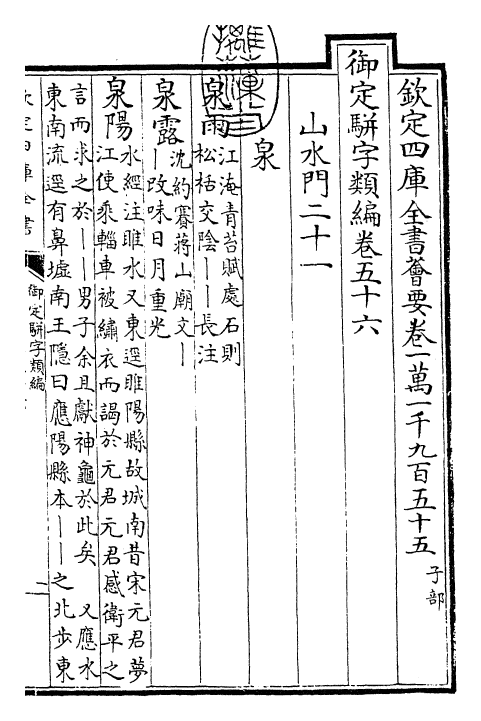 欽定四庫全書薈要卷一萬一千九百五十五 子部
御定駢字類編卷五十六
山水門二十一
泉
泉雨 江淹青苔賦處石則
松栝交陰丨丨長注
泉露 沈約賽蔣山廟文丨
丨改味日月重光
泉陽 水經注睢水又東逕睢陽縣故城南昔宋元君夢
江使乘輜車被繡衣而謁於元君元君感衛平之
言而求之於丨丨男子余且獻神龜於此矣 又應水
東南流逕有鼻墟南王隱曰應陽縣本丨丨之北步東
欽定四庫全書
御定駢字類編